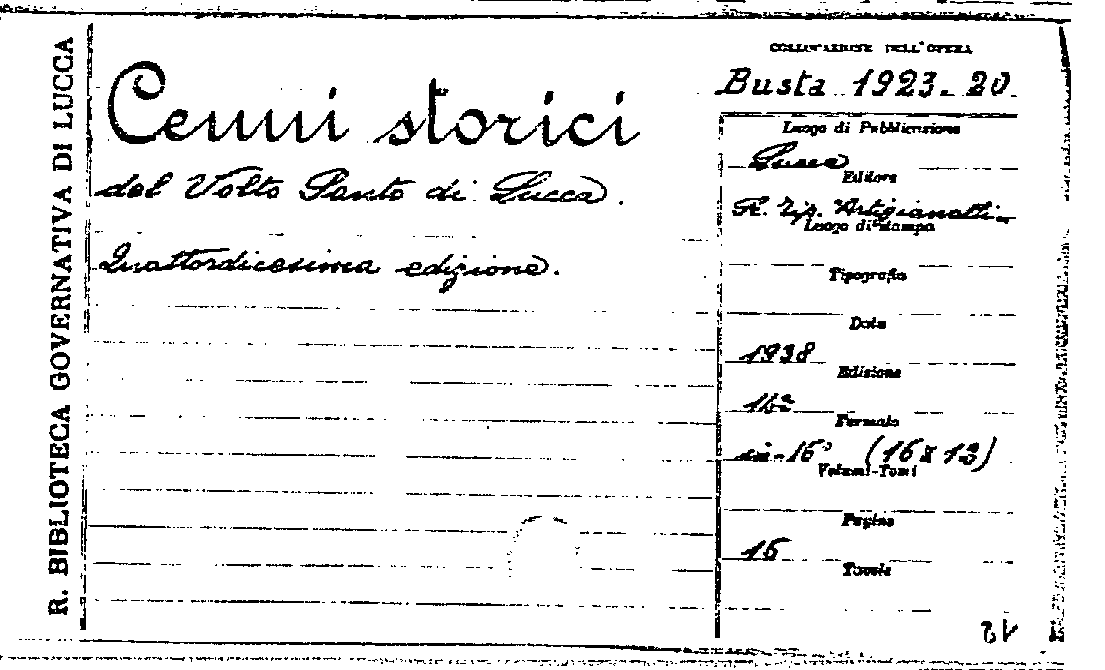 R. BIBLIOTECA GOVERNATIVA DI LUCCA
Cenni storici
del Volto Santo di Lucca.
Quattordicesima edizione.
COLLOCAZIONE DELL'OPERA
Busta 1923-20
Luogo di Pubblicazione
Lucca
Editore
Tip. Artigianelli
Luogo di Stampa
Tipografia
Data
1938
Edizione
Formato
in-16° (16 x 12)
Volumi-Tomi
Pagine
Tavole